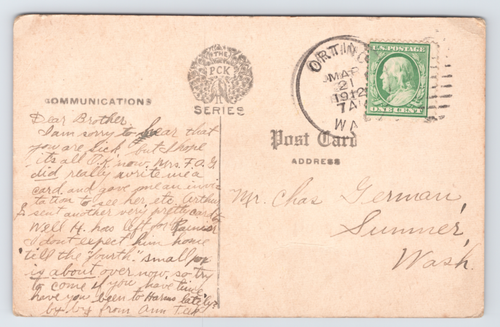 THE
PCK
SERIES
ORTING
MAR
21
1912
7 A
WA
U.S. POSTAGE
ONE CENT
COMMUNICATIONS
Post Card
ADDRESS
Dear Brother.
I am sorry to hear that
you are sick, but I hope
its all O.K. now. Mrs. F.O. G
did really write me a
card and gave me an invi
tation to see her, etc. Arthur
sent another very pretty card to
Well H. has left for Rainier
I don't expect him home
'till the "fourth." small pox
is about over now, so try
to come if you have time
have you been to lately
by by from Ann
Mr. Chas German,
Sumner,
Wash.